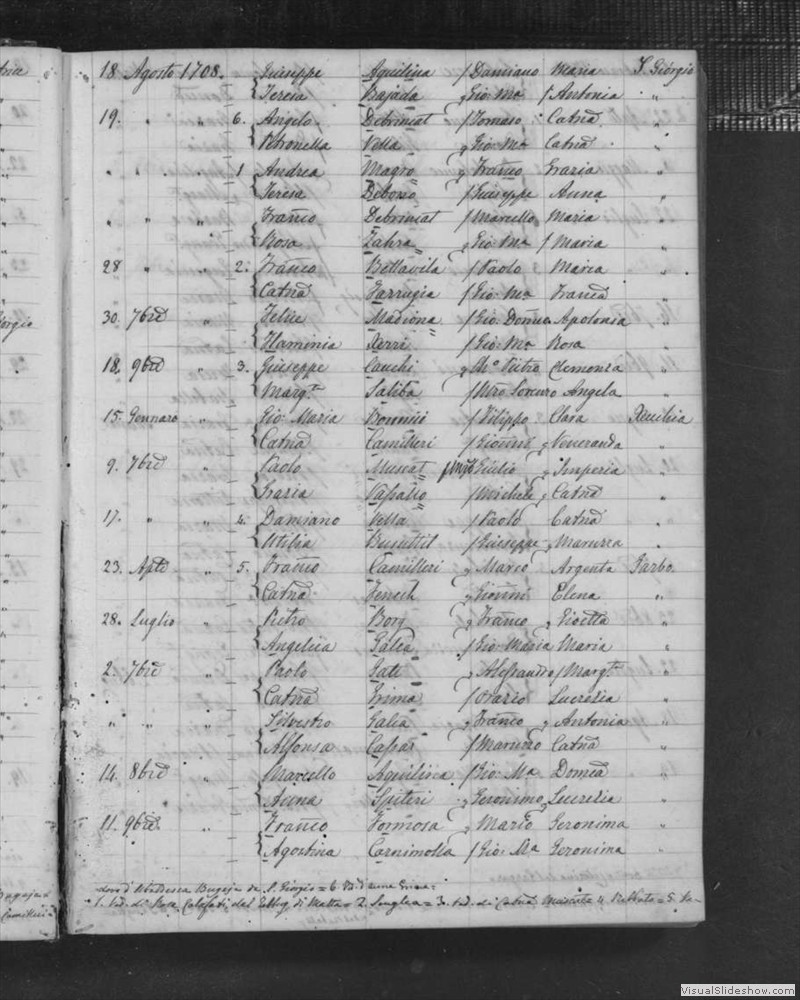 18. Agosto 1708. Giuseppe Aquilina / Damiano Maria S. Giorgio
Teresa Bajada Gio: Ma / Antonia "
19. " " 6. Angelo Debrincat / Tomaso Catnā "
Petronella Vella Gio: Ma Catnā "
" " 1 Andrea Magro Franco Grazia "
Teresa Debono / Giuseppe Anna "
" " " Franco Debrincat / Marcello Maria "
Rosa Zahra Gio: Ma / Maria "
28 " " 2. Franco Bellavila / Paolo Maria "
Catnā Farrugia / Gio: Ma Francā "
30. 7bre " Felice Madiona / Gio: Domco Apolonia "
Flaminia Xerri / Gio: Ma Rosa "
18. 9bre " 3. Giuseppe Cauchi Pietro Clemenza "
Margta Saliba / Mro Lorenzo Angela "
15. Gennaro " Gio: Maria Bonnici / Filippo Clara Xeuchia
Catnā Camilleri / Gionni Veneranda "
9. 7bre " Paolo Muscat Giulio Imperia "
Grazia Vassallo / Michele Catnā "
17. " " 4. Damiano Vella / Paolo Catnā "
Utilia Busuttil / Giuseppe Maruzza "
23. Aple " 5. Franco Camilleri Marco Argenta Garbo.
Catnā Fenech Gionni Elena "
28. Luglio " Pietro Borg Franco Gioetta "
Angelica Galea / Gio: Maria Maria "
2. 7bre " Paolo Gati Alessandro / Margta "
Catnā Grima / Orazio Lucrezia "
" " " Silvestro Galea Franco Antonia "
Alfonsa Caspar / Maruzzo Catnā "
14. 8bre " Marcello Aquilina / Gio: Ma Domcā "
Anna Spiteri Geronimo Lucrezia "
11. 9bre " Franco Formosa Mario Geronima "
Agostina Carnimolla / Gio: Ma Geronima "
Bugeja de S. Giorgio = 6. Vd. d'
1. Vd. di Rosa Calafati del Borgo di Malta = 2. Senglea = 3. Vd. di Catnā Muscat 4. Rabbato = 5. Va-
VisualSlideshow.com